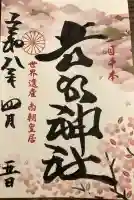 日本
吉水神社
世界遺産 南朝皇居
令和八年四月
五日